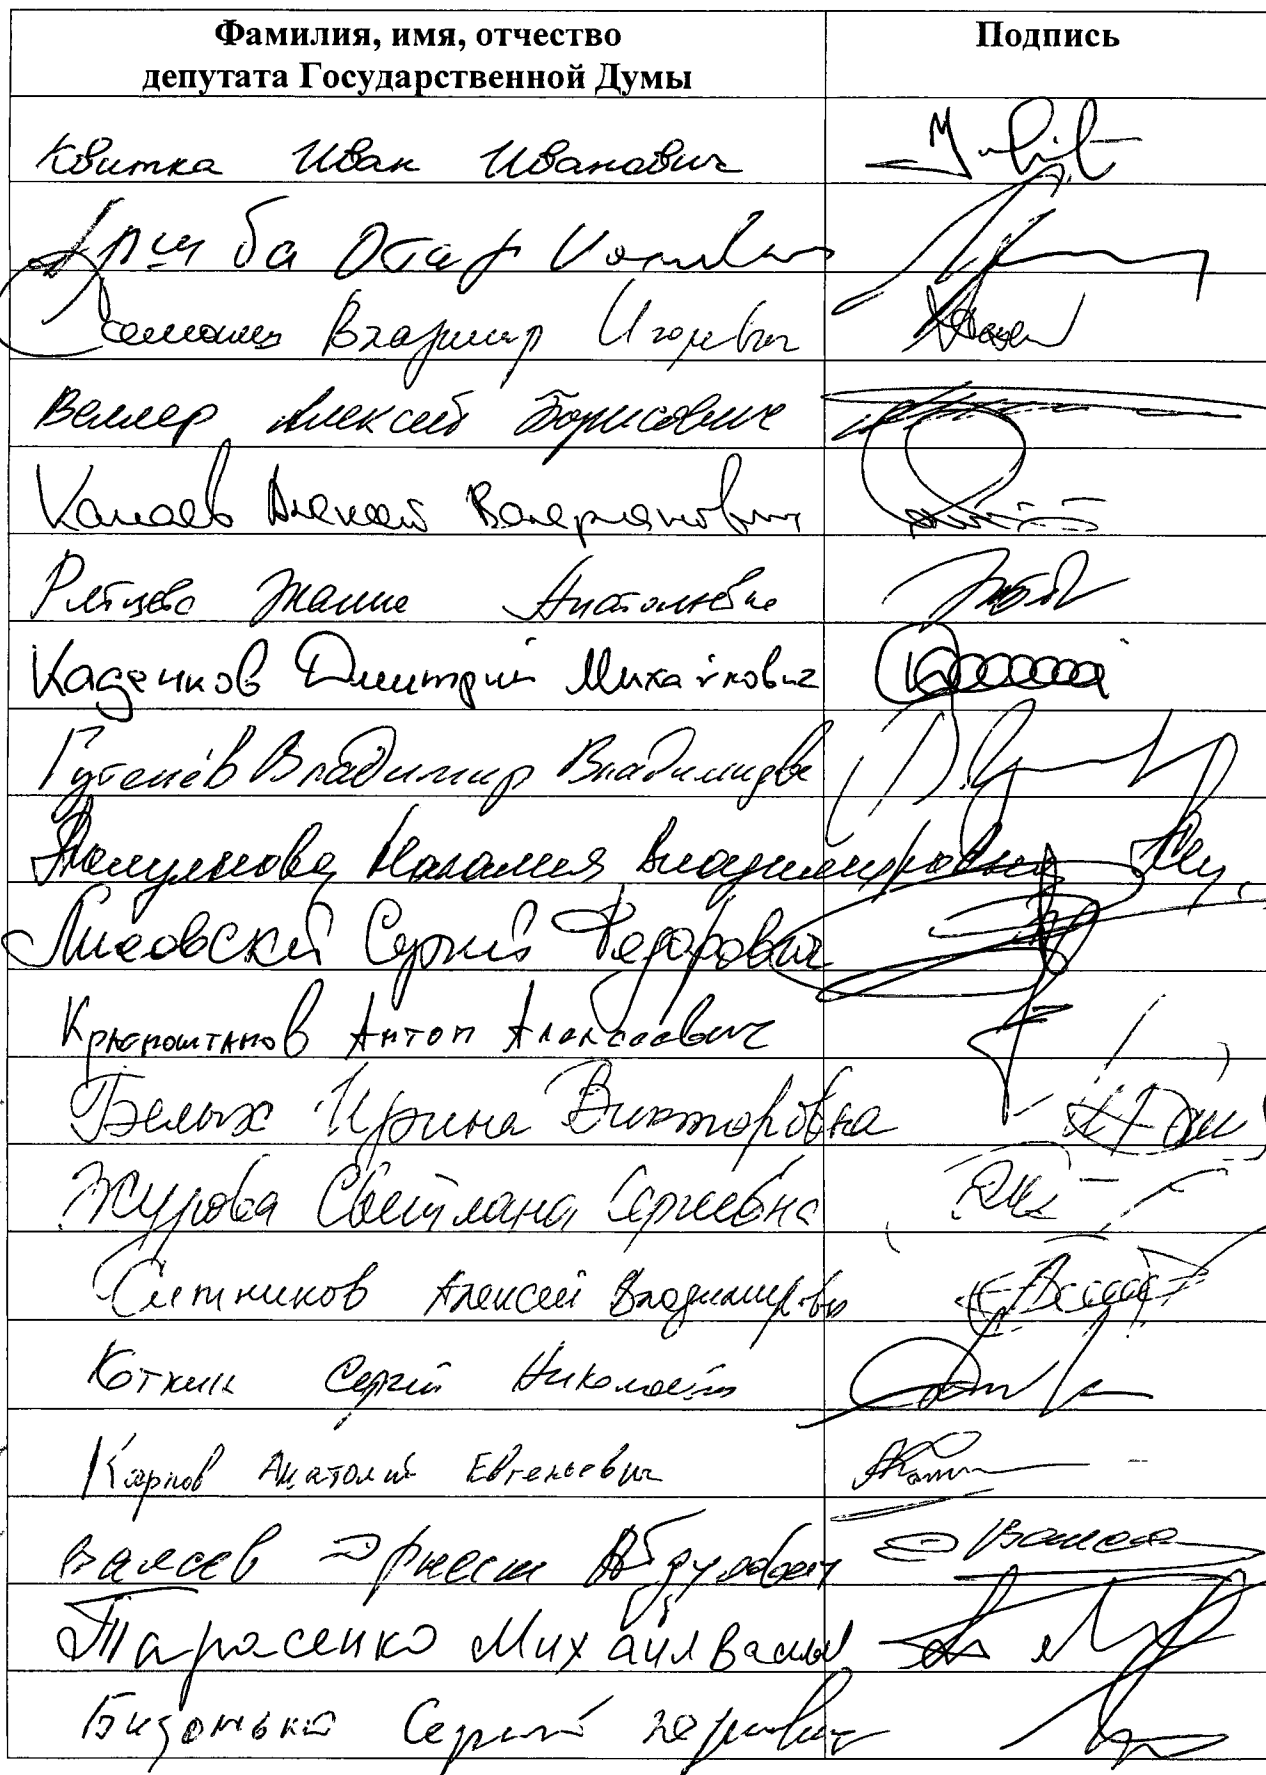 Фамилия, имя, отчество
депутата Государственной Думы
Подпись
Квитка Иван Иванович
Аршба Отар
Владимир Игоревич
Веллер Алексей Борисович
Канаев Алексей Валерианович
Рябцева Жанна Анатольевна
Каденков Дмитрий Михайлович
Гутенёв Владимир Владимирович
Полуянова Наталия Владимировна
Лисовский Сергей Федорович
Антон Алексеевич
Белых Ирина Викторовна
Журова Светлана Сергеевна
Ситников Алексей Владимирович
Коткин Сергей Николаевич
Карпов Анатолий Евгеньевич
Валеев Эрнест
Тарасенко Михаил Васил
Бидонько Сергей Юрьевич